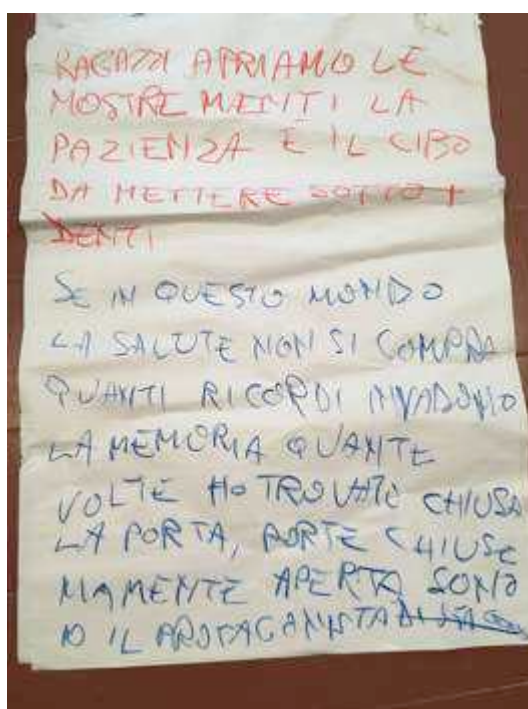 RAGAZZI APRIAMO LE
NOSTRE MENTI LA
PAZIENZA E IL CIBO
DA METTERE SOTTO I
DENTI
SE IN QUESTO MONDO
LA SALUTE NON SI COMPRA
QUANTI RICORDI INVADONO
LA MEMORIA QUANTE
VOLTE HO TROVATO CHIUSA
LA PORTA, PORTE CHIUSE
MAMENTE APERTA SONO
IO IL PROTAGANISTA